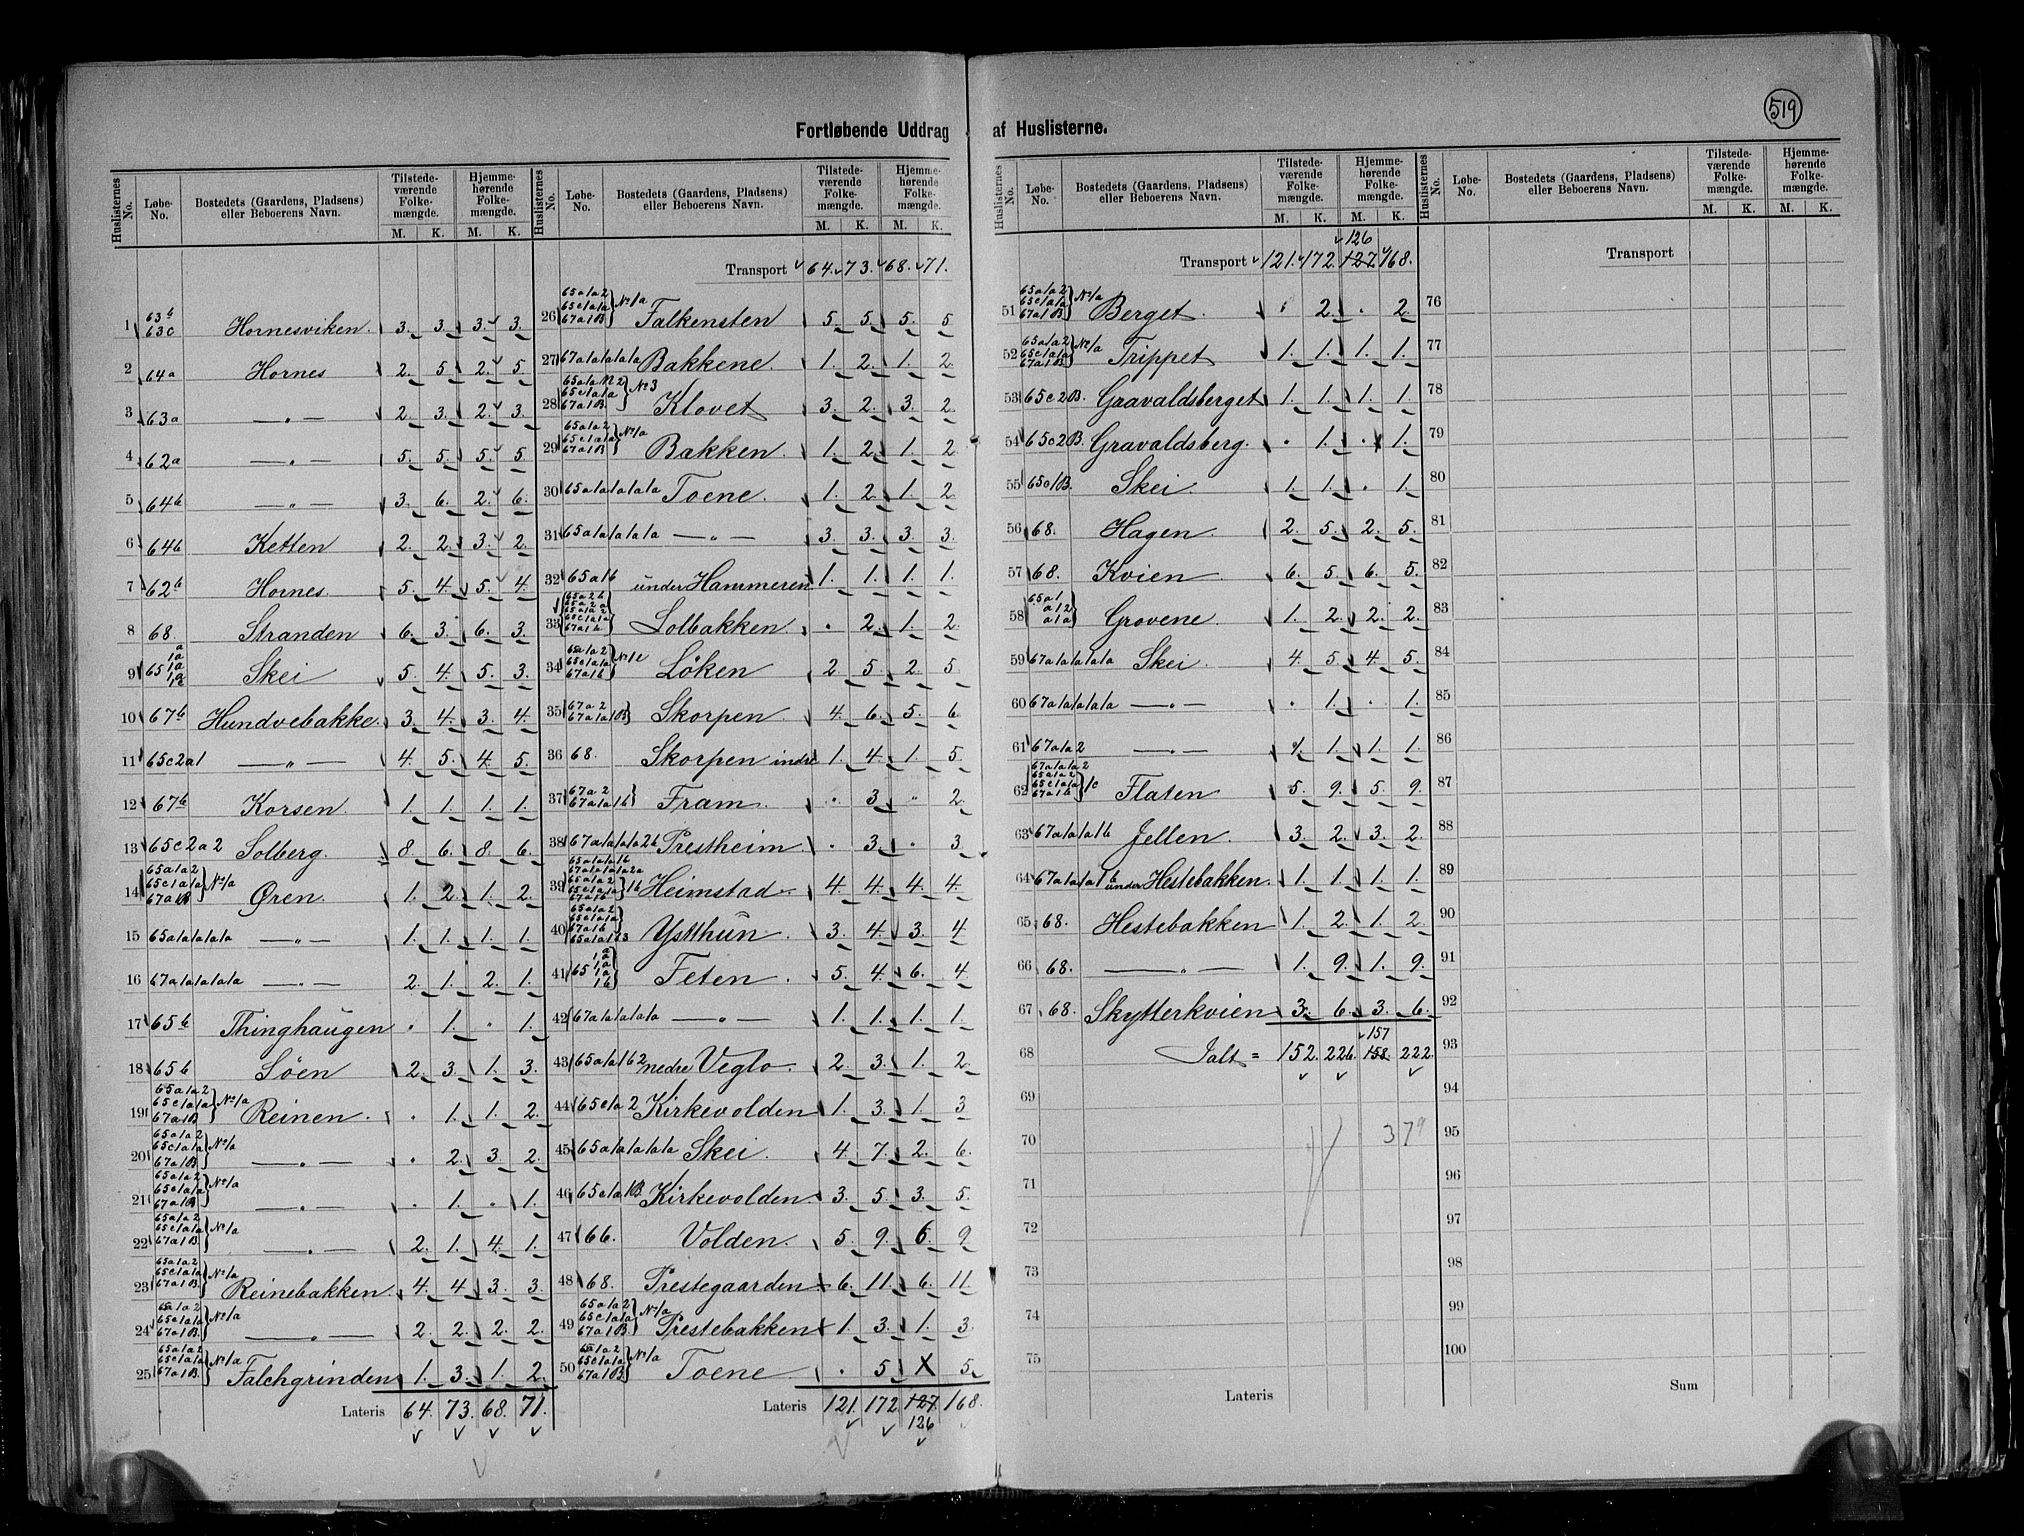 519
Fortløbende Uddrag af Huslisterne.
Huslisternes No. Løbe-No. Bostedets (Gaardens, Pladsens) eller Beboerens Navn. Tilstedeværende Folkemængde. M. K. Hjemmehørende Folkemængde. M. K.
1 63b 63c Hornesviken. 3. 3. 3. 3.
2 64a Hornes 2. 5. 2. 5.
3 63a — „ — 2. 3. 2. 3.
4 62a — „ — 5. 5. 5. 5.
5 64b — „ — 3. 6. 2. 6.
6 64b Ketten 2. 2. 3. 2.
7 62b Hornes 5. 4. 5. 4.
8 68. Stranden 6. 3. 6. 3.
9 65 a 1a 1a 1a 1c Skei 5. 4. 5. 3.
10 67b Hundvebakke. 3. 4. 3. 4.
11 65c2a1 — „ — 4. 5. 4. 5.
12 67b Korsen. 1. 1. 1. 1.
13 65c2a2 Solberg. 8. 6. 8. 6.
14 65a1a2 65c1a1a 67a1B } No 1a Øren. 1. 2. 1. 2.
15 65a1a1a1a — „ — 1. 1. 1. 1.
16 67a1a1a1a — „ — 2. 1. 2. 1.
17 65b Thinghaugen . 1. „ 1.
18 65b Söen 2. 3. 1. 3.
19 65a1a2 65c1a1a 67a1B } No 1a Reinen. . 1. 1. 2.
20 65a1a2 65c1a1a 67a1B } No 1a — „ — . 2. 3. 2.
21 65a1a2 65c1a1a 67a1B } No 1a — „ — . 1. . 1.
22 65a1a2 65c1a1a 67a1B } No 1a — „ — 2. 1. 4. 1.
23 65a1a2 65c1a1a 67a1B } No 1a Reinebakken. 4. 4. 3. 3.
24 65a1a2 65c1a1a 67a1B } No 1a — „ — 2. 2. 2. 2.
25 65a1a2 65c1a1a 67a1B } No 1a Falchgrinden 1. 3. 1. 2.
Lateris 64. 73. 68. 71.
Huslisternes No. Løbe-No. Bostedets (Gaardens, Pladsens) eller Beboerens Navn. Tilstedeværende Folkemængde. M. K. Hjemmehørende Folkemængde. M. K.
Transport 64. 73. 68. 71.
26 65a1a2 65c1a1a 67a1B } No 1a Falkensten 5. 5. 5. 5
27 67a1a1a1a1a Bakkene. 1. 2. 1. 2
28 65c1a1a 67a1B } No 3 Klovet 3. 2. 3. 2
29 65a1a2 65c1a1a 67a1B } No 1a Bakken. 1. 2. 1. 2
30 65a1a1a1a1a Toene. 1. 2. 1. 2
31 65a1a1a1a1a — „ — 3. 3. 3. 3.
32 65a1b under Hammeren 1. 1. 1. 1.
33 65a2b 65a2a 65a1a2 65c1a1a 67a1b } Solbakken. . 2. 1. 2
34 65a1a2 65c1a1a 67a1b } No 1c Löken 2. 5. 2. 5
35 67a2 67a1a1B } Skorpen. 4. 6. 5. 6
36 68. Skorpen indre 1. 4. 1. 5
37 67a2 67a1a1b } Fram. . 3. „ 2
38 67a1a1a1a2b Prestheim. . 3. . 3
39 65a1a1a1b 67a1a1a1a2a 65a1a2 65c1a1a 67a1b } 1b Heimstad 4. 4. 4. 4
40 65a1a2 65c1a1a 67a1b 65a1a1b3 } Ystthun 3. 4. 3. 4
41 65 1a 1a 1a 1b } Feten. 5. 4. 6. 4
42 67a1a1a1a1a — „ — 1. 1. 1. 1
43 65a1a1b2 nedre Veglo 2. 3. 1. 2
44 65c1a2 Kirkevolden 1. 3. 1. 3
45 65a1a1a1a1a Skei. 4. 7. 2. 6.
46 65c1a1B Kirkevolden. 3. 5. 3. 5.
47 66. Volden. 5. 9. 6. 9
48 68. Prestegaarden 6. 11. 6. 11
49 65a1a2 65c1a1a 67a1B } No 1a Prestebakken 1. 3. 1. 3
50 65a1a2 65c1a1a 67a1B } No 1a Toene . 5. X 5.
Lateris 121. 172 127. 168.
126
Huslisternes No. Løbe-No. Bostedets (Gaardens, Pladsens) eller Beboerens Navn. Tilstedeværende Folkemængde. M. K. Hjemmehørende Folkemængde. M. K.
126
Transport 121. 172. 127. 168.
51 65a1a2 65c1a1a 67a1B } No 1a Berget. . 2. . 2.
52 65a1a2 65c1a1a 67a1B } No 1a Trippet 1. 1. 1. 1.
53 65c2B. Gravaldsberget 1. 1. 1. 1.
54 65c2B. Gravaldsberg. . 1. . 1.
55 65c1B. Skei. 1. 1. . 1.
56 68. Hagen. 2. 5. 2. 5.
57 68. Kvien 6. 5. 6. 5.
58 65a1 a12 a1a } Grovene. 1. 2. 2. 2.
59 67a1a1a1a1a Skei. 4. 5. 4. 5.
60 67a1a1a1a1a — „ — . 1. . 1.
61 67a1a2 — „ — 1. 1. 1. 1.
62 67a1a1a2 65a1a2 65c1a1a 67a1b } 1c Flaten 5. 9. 5. 9.
63 67a1a1a1b Jellen. 3. 2. 3. 2.
64 67a1a1a1b under Hestebakken. 1. 1. 1. 1.
65 68. Hestebakken 1. 2. 1. 2.
66 68. — „ — 1. 9. 1. 9.
67 68. Skytterkvien 3. 6. 3. 6.
157
68 Ialt = 152. 226. 158. 222.
69
70 379
71
72
73
74
75
Lateris
Huslisternes No. Løbe-No. Bostedets (Gaardens, Pladsens) eller Beboerens Navn. Tilstedeværende Folkemængde. M. K. Hjemmehørende Folkemængde. M. K.
Transport
76
77
78
79
80
81
82
83
84
85
86
87
88
89
90
91
92
93
94
95
96
97
98
99
100
Sum